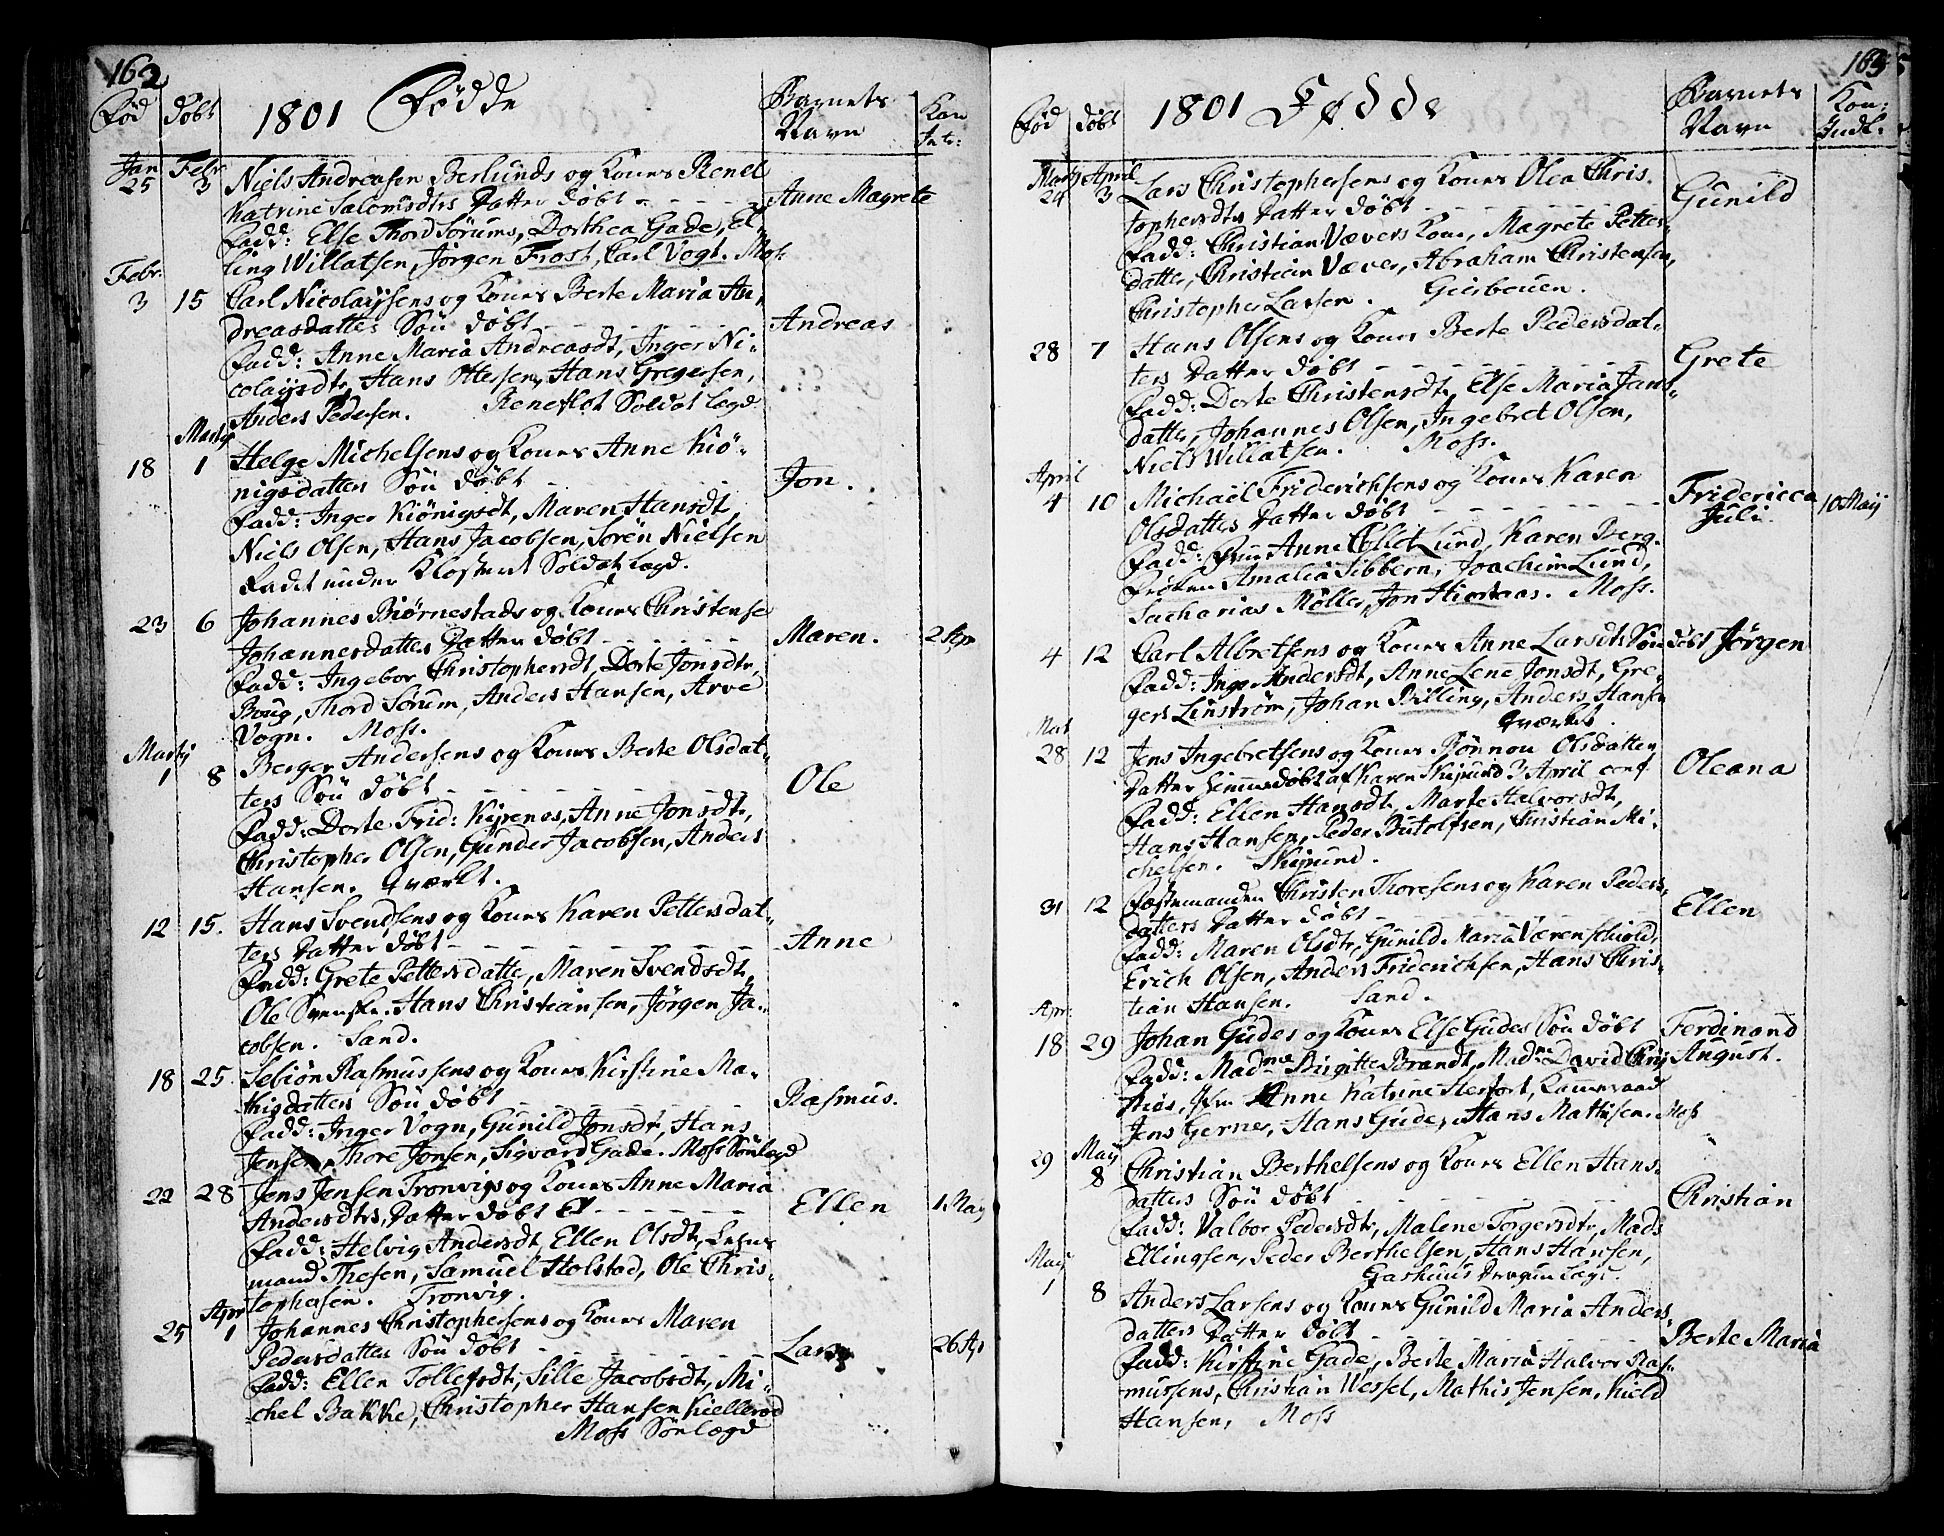 162
Fød Døbt 1801 Fødde Barnets Navn Kon Intr:
Jan 25 Febr 3 Niels Andreasen Berlunds og Kones Renel
Katrine Salomsdtrs Datter døbt - - - - - Anne Magrete
Fadd: Else Thord Sørums, Dorthea Gade, El-
ling Willatsen, Jørgen Frost, Carl Vogt. Moss
Febr: 3 15 Carl Nicolaysens og Kones Berte Maria An-
dreasdatters Søn døbt - - - - - Andreas
Fadd: Anne Maria Andreasdt, Inger Ni-
colaysdtr, Hans Ottersen, Hans Gregersen,
Anders Pedersen. Reneflot Soldat Legd
18 Martij 1 Helge Michelsens og Kones Anne Kiö-
nigsdatters Søn døbt - - - - - Jon.
Fadd: Inger Kiönigsdt, Maren Hansdt,
Niels Olsen, Hans Jacobsen, Sørén Nielsen
under Klostret Soldat Legd.
23 6 Johannes Biørnestads og Kones Christense
Johannesdatters Datter døbt - - - - - Maren. 2 Apr
Fadd: Ingebor Christophersdt, Dorte Jonsdtr,
Boug, Thord Sørum, Anders Hansen, Arve
Vogn. Moss.
Martij 1 8 Berger Andersens og Kones Berte Olsdat-
ters Søn døbt - - - - - Ole
Fadd: Dorte Frid: Kipenes, Anne Jonsdt,
Christopher Olsen, Gunder Jacobsen, Anders
Hansen. Qværkt.
12 15. Hans Svendsens og Kones Karen Pettersdat-
ters Datter døbt - - - - - Anne
Fadd: Grete Pettersdatte, Maren Svendsdt,
Ole Svenske. Hans Christiansen, Jørgen Ja-
cobsen. Sand.
18 25. Sebiön Rasmussens og Kones Kirstine Ma-
thisdatters Søn døbt - - - - - Rasmus.
Fadd: Inger Vogn, Gunild Jonsdr, Hans
Jensen, Thore Jonsen, Sigvard Gade. Moss Sønlegd
22 28 Jens Jensen Tronvigs og Kones Anne Maria
Andersdtrs, Datter døbt El - - - - - Ellen 1 May
Fadd: Helvig Andersdt, Ellen Olsdt,
mand Thesen, Samuel Holstad, Ole Chris-
tophersen. Tronvig.
25 Apr 1 Johannes Christophersens og Kones Maren
Pedersdatters Søn døbt - - - - - Lars 26 Ap
Fadd: Ellen Tollefsdt, Sille Jacobsdt, Mi-
chel Bakke, Christopher Hansen Kiellerød
Moss Sønlægd
163
Fød døbt 1801 Fødde Barnets Navn Kon: Indl:
Martij 24 April 3 Lars Christophersens og Kones Olea Chris-
tophersdtrs Datter døbt - - - - - Gunild
Fadd: Christian Vævers Kone, Magrete Petter-
datter, Christian Væver, Abraham Christensen,
Christopher Larsen.
28 7 Hans Olsens og Kones Berte Pedersdat-
ters Datter døbt - - - - - Grete
Fadd: Dorte Christensdt, Else Maria Jans-
datte, Johannes Olsen, Ingebret Olsen,
Niels Willatsen. Moss.
April 4 10 Michaël Friderichsens og Kones Karen
Olsdatters Datter døbt - - - - - Fridericca Juli. 10 Maij
Fadd: Frue Anne Collet Lund, Karen Berg.
Frøken Amalia Sibbern, Joachim Lund,
Sacharias Møller, Jon Hiortaas. Moss.
4 12 Carl Albretsens og Kones Anne Larsdt Søn døbt Jørgen
Fadd: Inger Andersdt, Anne Lene Jonsdt, Gre-
gers Linstrøm, Johan Billing, Anders Hansen
Qværket.
Mart 28 12 Jens Ingebretsens og Kones Rønnou Olsdatters
Datter hjemmedøbt af Karen Skipsund 3 April conf Oleana
Fadd: Ellen Hansdt, Marte Halvorsdt,
Hans Hansen, Peder Butolfsen, Christian Mi-
chelsen. Skipsund.
31 12 Fæstemanden Christen Thoresens og Karen Peders-
datters Datter døbt - - - - - Ellen
Fadd: Maren Olsdtr, Gunild Maria Værenschiold,
Erich Olsen, Anders Friderichsen, Hans Chris-
tian Hansen. Sand.
Apr: 18 29 Johan Gudes og Kones Else Gudes Søn døbt Ferdinand
Fadd: Madme Birgitte Brandt, Madme David Chris August.
Anne Katrine Herfort, Kammeraad
Jens Gerner, Hans Gude, Hans Mathisen. Moss
29 Maij 8 Christian Berthelsens og Kones Ellen Hans-
datters Søn døbt - - - - - Christian
Fadd: Valbor Pedersdtr, Malene Torgersdtr, Mads
Ellingsen, Peder Berthelsen, Hans Hansen,
Gashuus Dragun Legd.
May 1 8 Anders Larsens og Kones Gunild Maria Anders-
datters Datter døbt - - - - - Berte Maria
Fadd: Kirstine Gade, Berte Maria Halvor Ras-
mussens, Christian Wessel, Mathis Jensen, Kield
Hansen, Moss